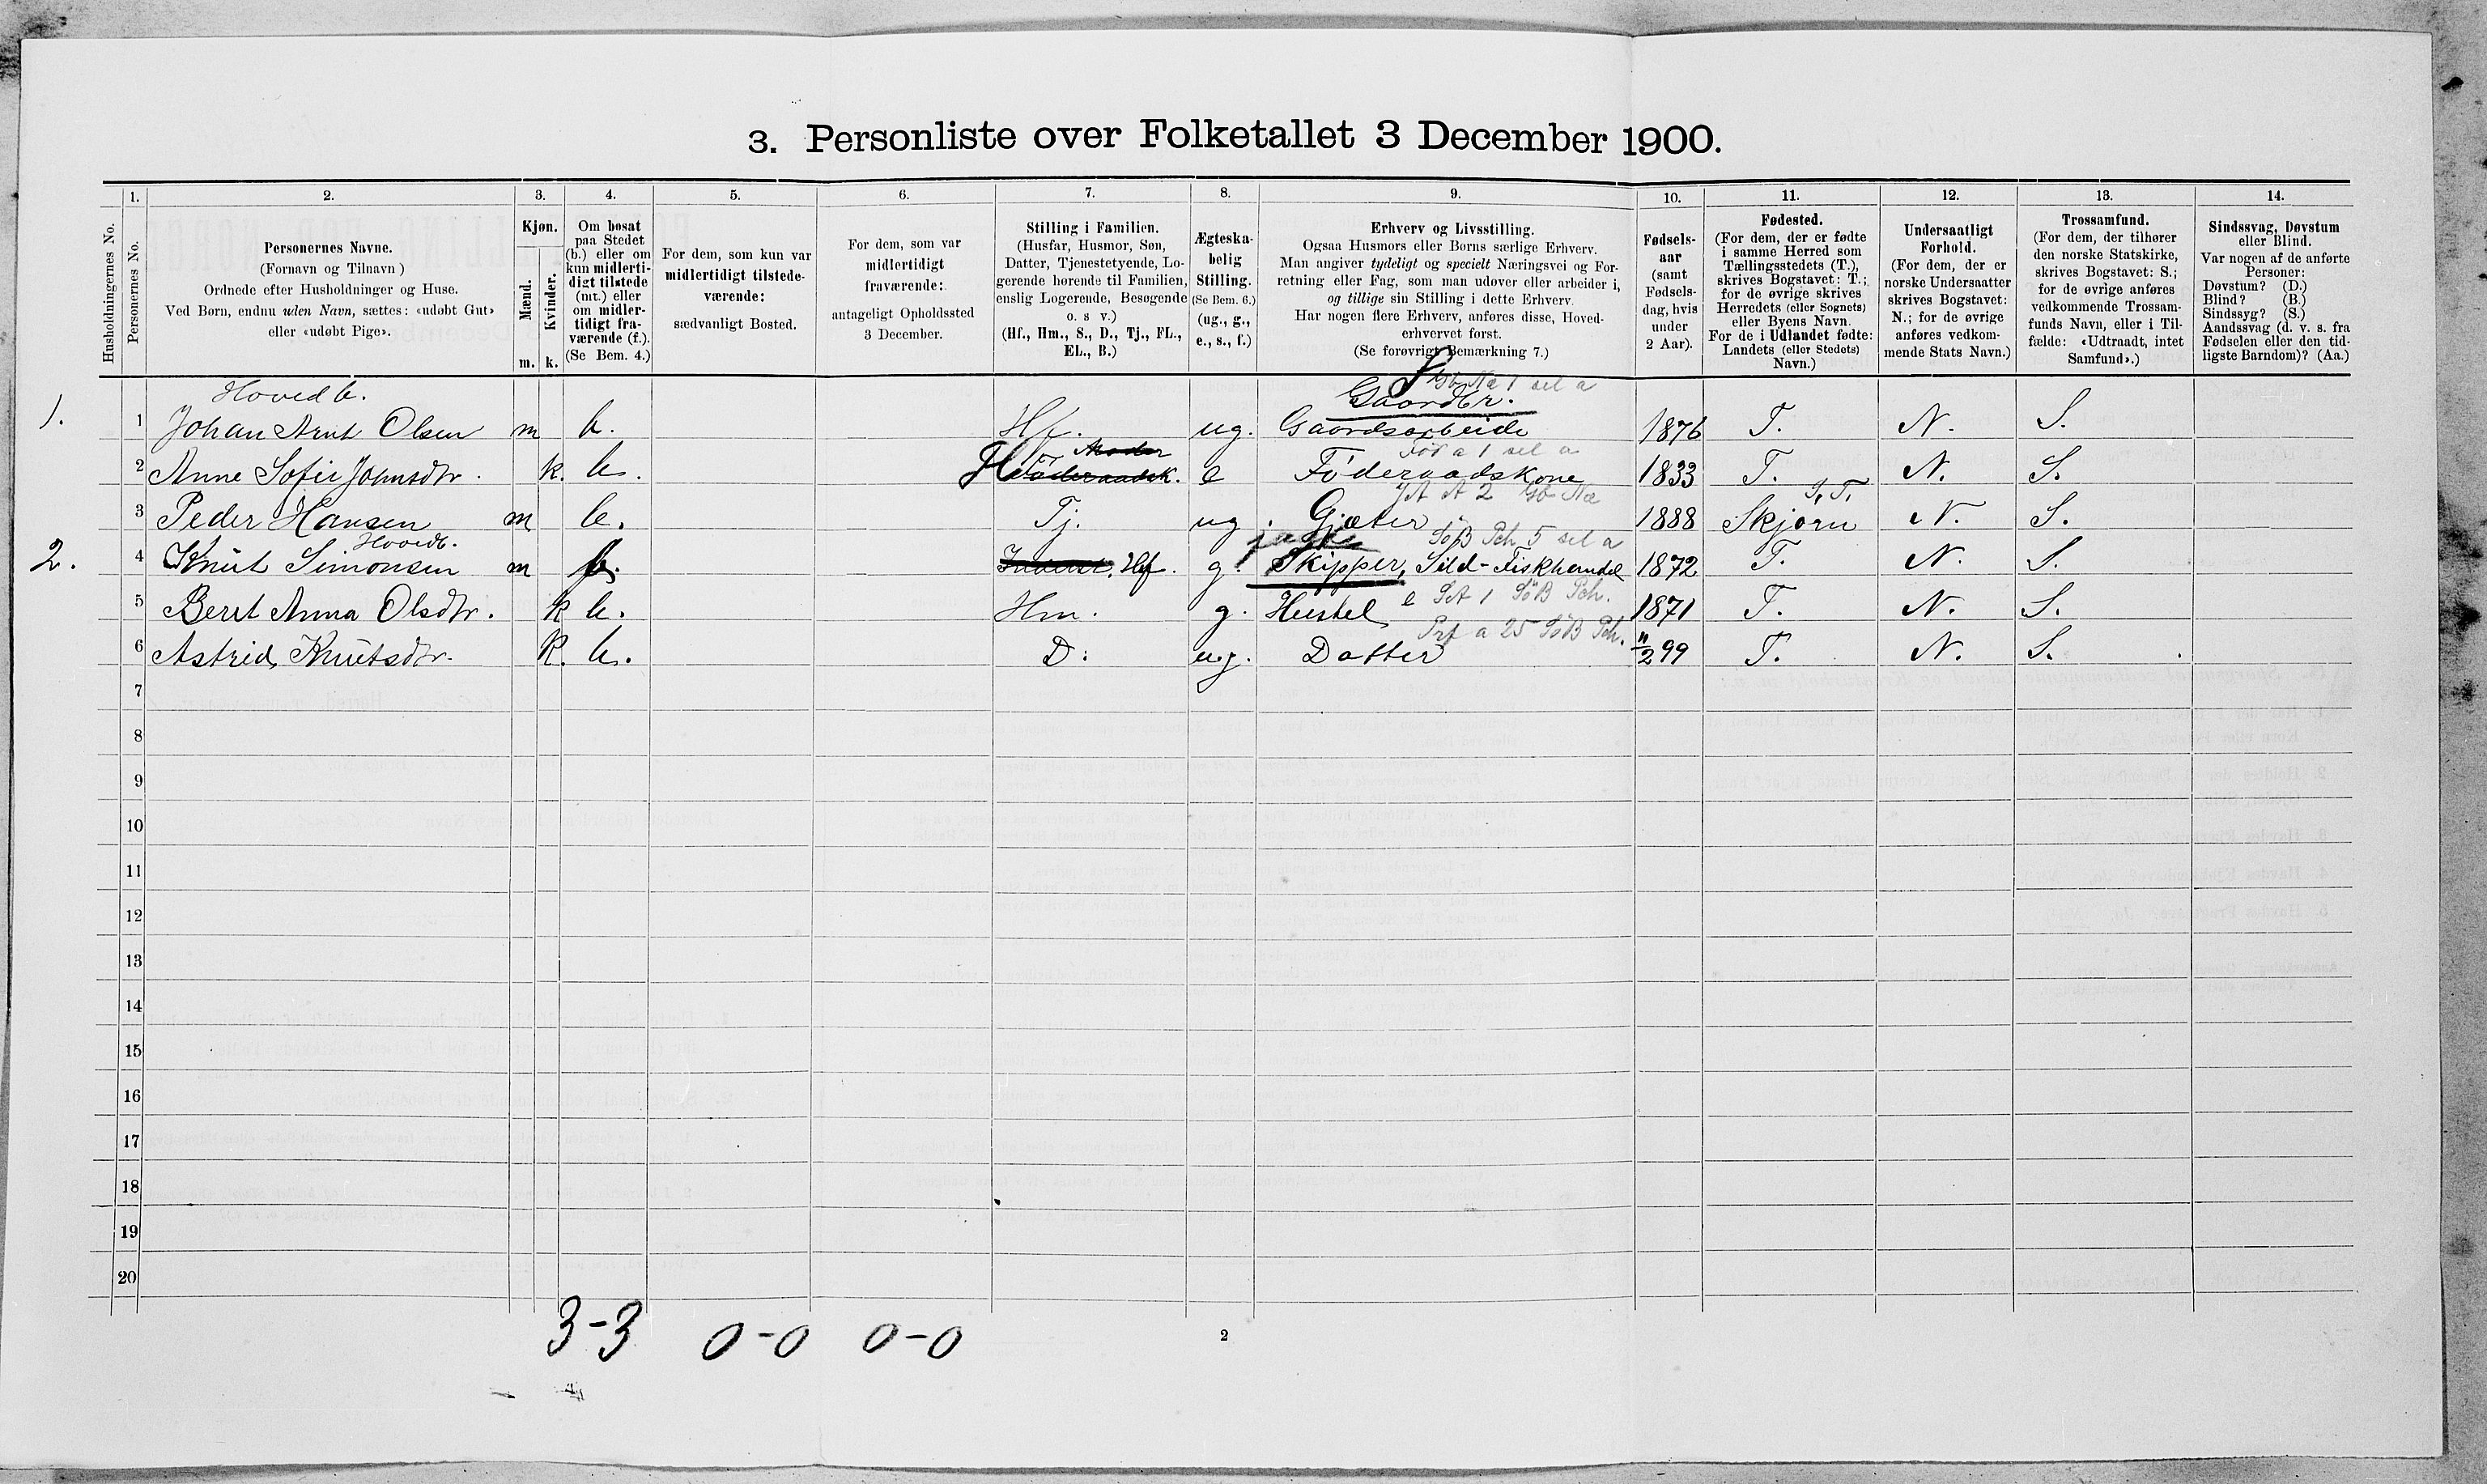 3. Personliste over Folketallet 3 December 1900.
1. 2. 3. 4. 5. 6. 7. 8. 9. 10. 11. 12. 13. 14.
Husholdningernes No.
Personernes No.
Personernes Navne.
(Fornavn og Tilnavn )
Ordnede efter Husholdninger og Huse.
Ved Børn, endnu uden Navn, sættes: «udøbt Gut»
eller «udøbt Pige».
Kjøn.
Mænd.
Kvinder.
m. k.
Om bosat
paa Stedet
(b.) eller om
kun midlerti-
digt tilstede
(mt.) eller
om midler-
tidigt fra-
værende (f.).
(Se Bem. 4.)
For dem, som kun var
midlertidigt tilstede-
værende:
sædvanligt Bosted.
For dem, som var
midlertidigt
fraværende:
antageligt Opholdssted
3 December.
Stilling i Familien.
(Husfar, Husmor, Søn,
Datter, Tjenestetyende, Lo-
gerende hørende til Familien,
enslig Logerende, Besøgende
o. s v.)
(Hf., Hm., S., D., Tj., FL.,
EL., B.)
Ægteska-
belig
Stilling.
(Se Bem. 6.)
(ug., g.,
e., s., f.)
Erhverv og Livsstilling.
Ogsaa Husmors eller Børns særlige Erhverv.
Man angiver tydeligt og specielt Næringsvei og For-
retning eller Fag, som man udøver eller arbeider i,
og tillige sin Stilling i dette Erhverv.
Har nogen flere Erhverv, anføres disse, Hoved-
erhvervet først.
(Se forøvrigt Bemærkning 7.)
Fødsels-
aar
(samt
Fødsels-
dag, hvis
under
2 Aar).
Fødested.
(For dem, der er fødte
i samme Herred som
Tællingsstedets (T.),
skrives Bogstavet: T.;
for de øvrige skrives
Herredets (eller Sognets)
eller Byens Navn.
For de i Udlandet fødte:
Landets (eller Stedets)
Navn.)
Undersaatligt
Forhold.
(For dem, der er
norske Undersaatter
skrives Bogstavet:
N.; for de øvrige
anføres vedkom-
mende Stats Navn.)
Trossamfund.
(For dem, der tilhører
den norske Statskirke,
skrives Bogstavet: S.;
for de øvrige anføres
vedkommende Trossam-
funds Navn, eller i Til-
fælde: «Udtraadt, intet
Samfund».)
Sindssvag, Døvstum
eller Blind.
Var nogen af de anførte
Personer:
Døvstum? (D.)
Blind? (B.)
Sindssyg? (S.)
Aandssvag (d. v. s. fra
Fødselen eller den tid-
ligste Barndom)? (Aa.)
Hovedb.
Gaardbr.
1. 1 Johan Arnt Olsen m b. Hf. ug. Gaardsarbeide 1876 T. N. S.
Moder
2 Anne Sofie Johnsdtr. k. b. Føderaadsk. e Føderaadskone 1833 T. N. S.
3 Peder Hansen m b. Tj. ug. Gjæter 1888 Skjørn N. S.
Hovedb.
2. 4 Knut Simonsen m b. Hf. g. Skipper, Sild-Fiskhandel 1872 T. N. S.
5 Berit Anna Olsdtr. k b. Hm. g. Husstel 1871 T. N. S.
6 Astrid Knutsdtr. k. b. D. ug. Datter 11/2 99 T. N. S.
7
8
9
10
11
12
13
14
15
16
17
18
19
20
3-3 0-0 0-0
2